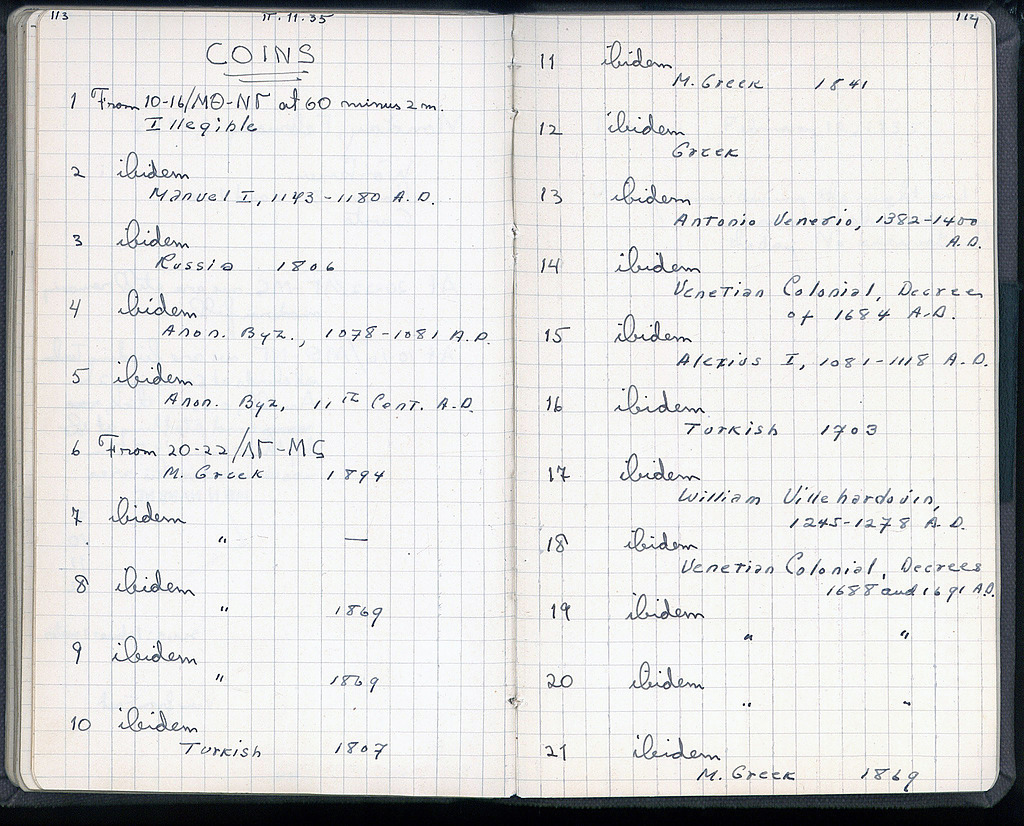 113
11.11.35
COINS
1 From 10-16/ΜΘ-ΝΓ at 60 minus 2 m.
Illegible
2 ibidem
Manuel I, 1143-1180 A.D.
3 ibidem
Russia 1806
4 ibidem
Anon. Byz., 1078-1081 A.D.
5 ibidem
Anon. Byz, 11th Cent. A.D.
6 From 20-22/ΛΓ-ΜϚ
M. Greek 1894
7 ibidem
" —
8 ibidem
" 1869
9 ibidem
" 1869
10 ibidem
Turkish 1807
114
11 ibidem
M. Greek 1841
12 ibidem
Greek
13 ibidem
Antonio Venerio, 1382-1400
A.D.
14 ibidem
Venetian Colonial, Decree
of 1684 A.D.
15 ibidem
Alexius I, 1081-1118 A.D.
16 ibidem
Turkish 1703
17 ibidem
William Villehardouin,
1245-1278 A.D.
18 ibidem
Venetian Colonial, Decrees
1688 and 1691 A.D.
19 ibidem
" "
20 ibidem
" "
21 ibidem
M. Greek 1869